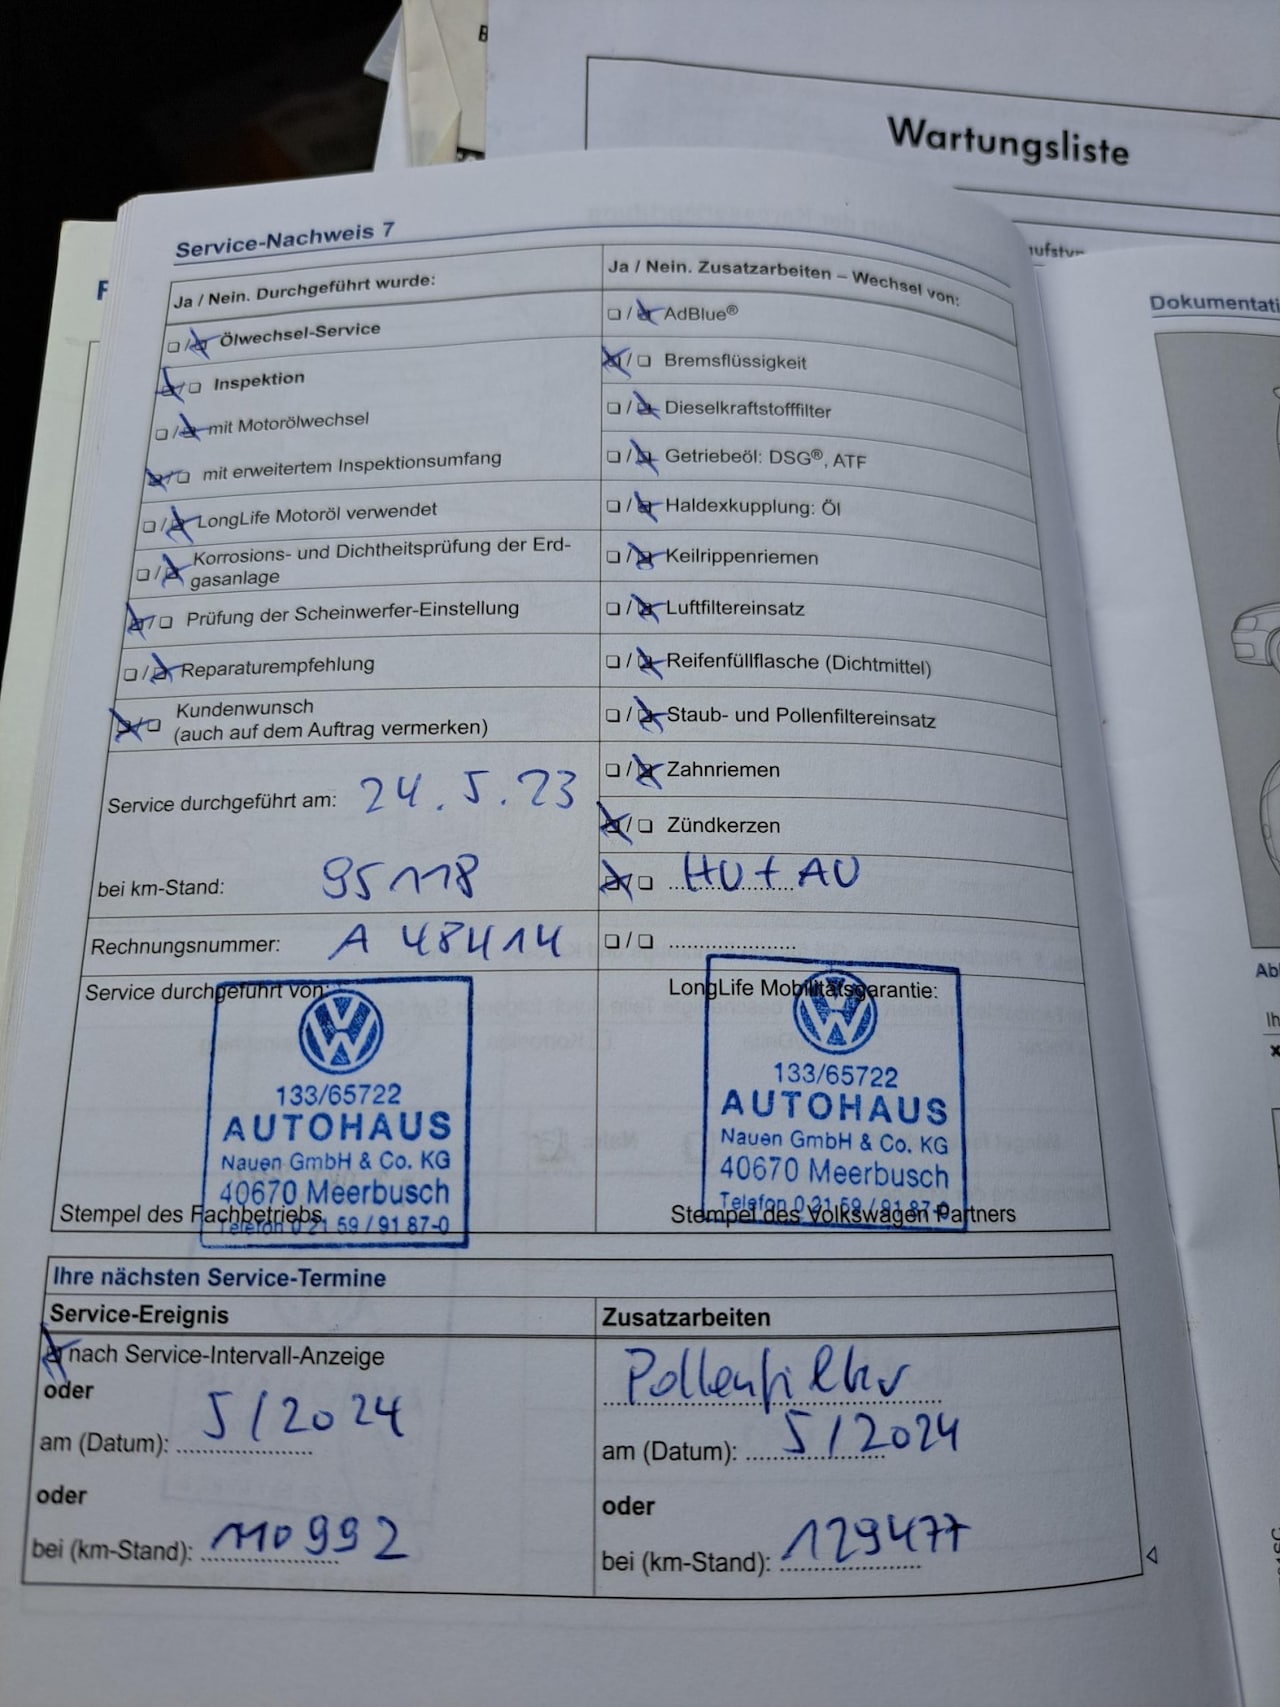 Wartungsliste
Service-Nachweis 7
Ja / Nein. Durchgeführt wurde:
Ölwechsel-Service
Inspektion
mit Motorölwechsel
mit erweitertem Inspektionsumfang
LongLife Motoröl verwendet
Korrosions- und Dichtheitsprüfung der Erd-
gasanlage
Prüfung der Scheinwerfer-Einstellung
Reparaturempfehlung
Kundenwunsch
(auch auf dem Auftrag vermerken)
Service durchgeführt am: 24.5.23
bei km-Stand: 95118
Rechnungsnummer: A 48414
Service durchgeführt von:
133/65722
AUTOHAUS
Nauen GmbH & Co. KG
40670 Meerbusch
Telefon 0 21 59 / 91 87-0
Stempel des Fachbetriebs
Ja / Nein. Zusatzarbeiten – Wechsel von:
AdBlue®
Bremsflüssigkeit
Dieselkraftstofffilter
Getriebeöl: DSG®, ATF
Haldexkupplung: Öl
Keilrippenriemen
Luftfiltereinsatz
Reifenfüllflasche (Dichtmittel)
Staub- und Pollenfiltereinsatz
Zahnriemen
Zündkerzen
HU + AU
LongLife Mobilitätsgarantie:
133/65722
AUTOHAUS
Nauen GmbH & Co. KG
40670 Meerbusch
Telefon 0 21 59 / 91 87-0
Stempel des Volkswagen Partners
Ihre nächsten Service-Termine
Service-Ereignis
nach Service-Intervall-Anzeige
oder
am (Datum): 5/2024
oder
bei (km-Stand): 110992
Zusatzarbeiten
Pollenfilter
am (Datum): 5/2024
oder
bei (km-Stand): 129477
Dokumentati